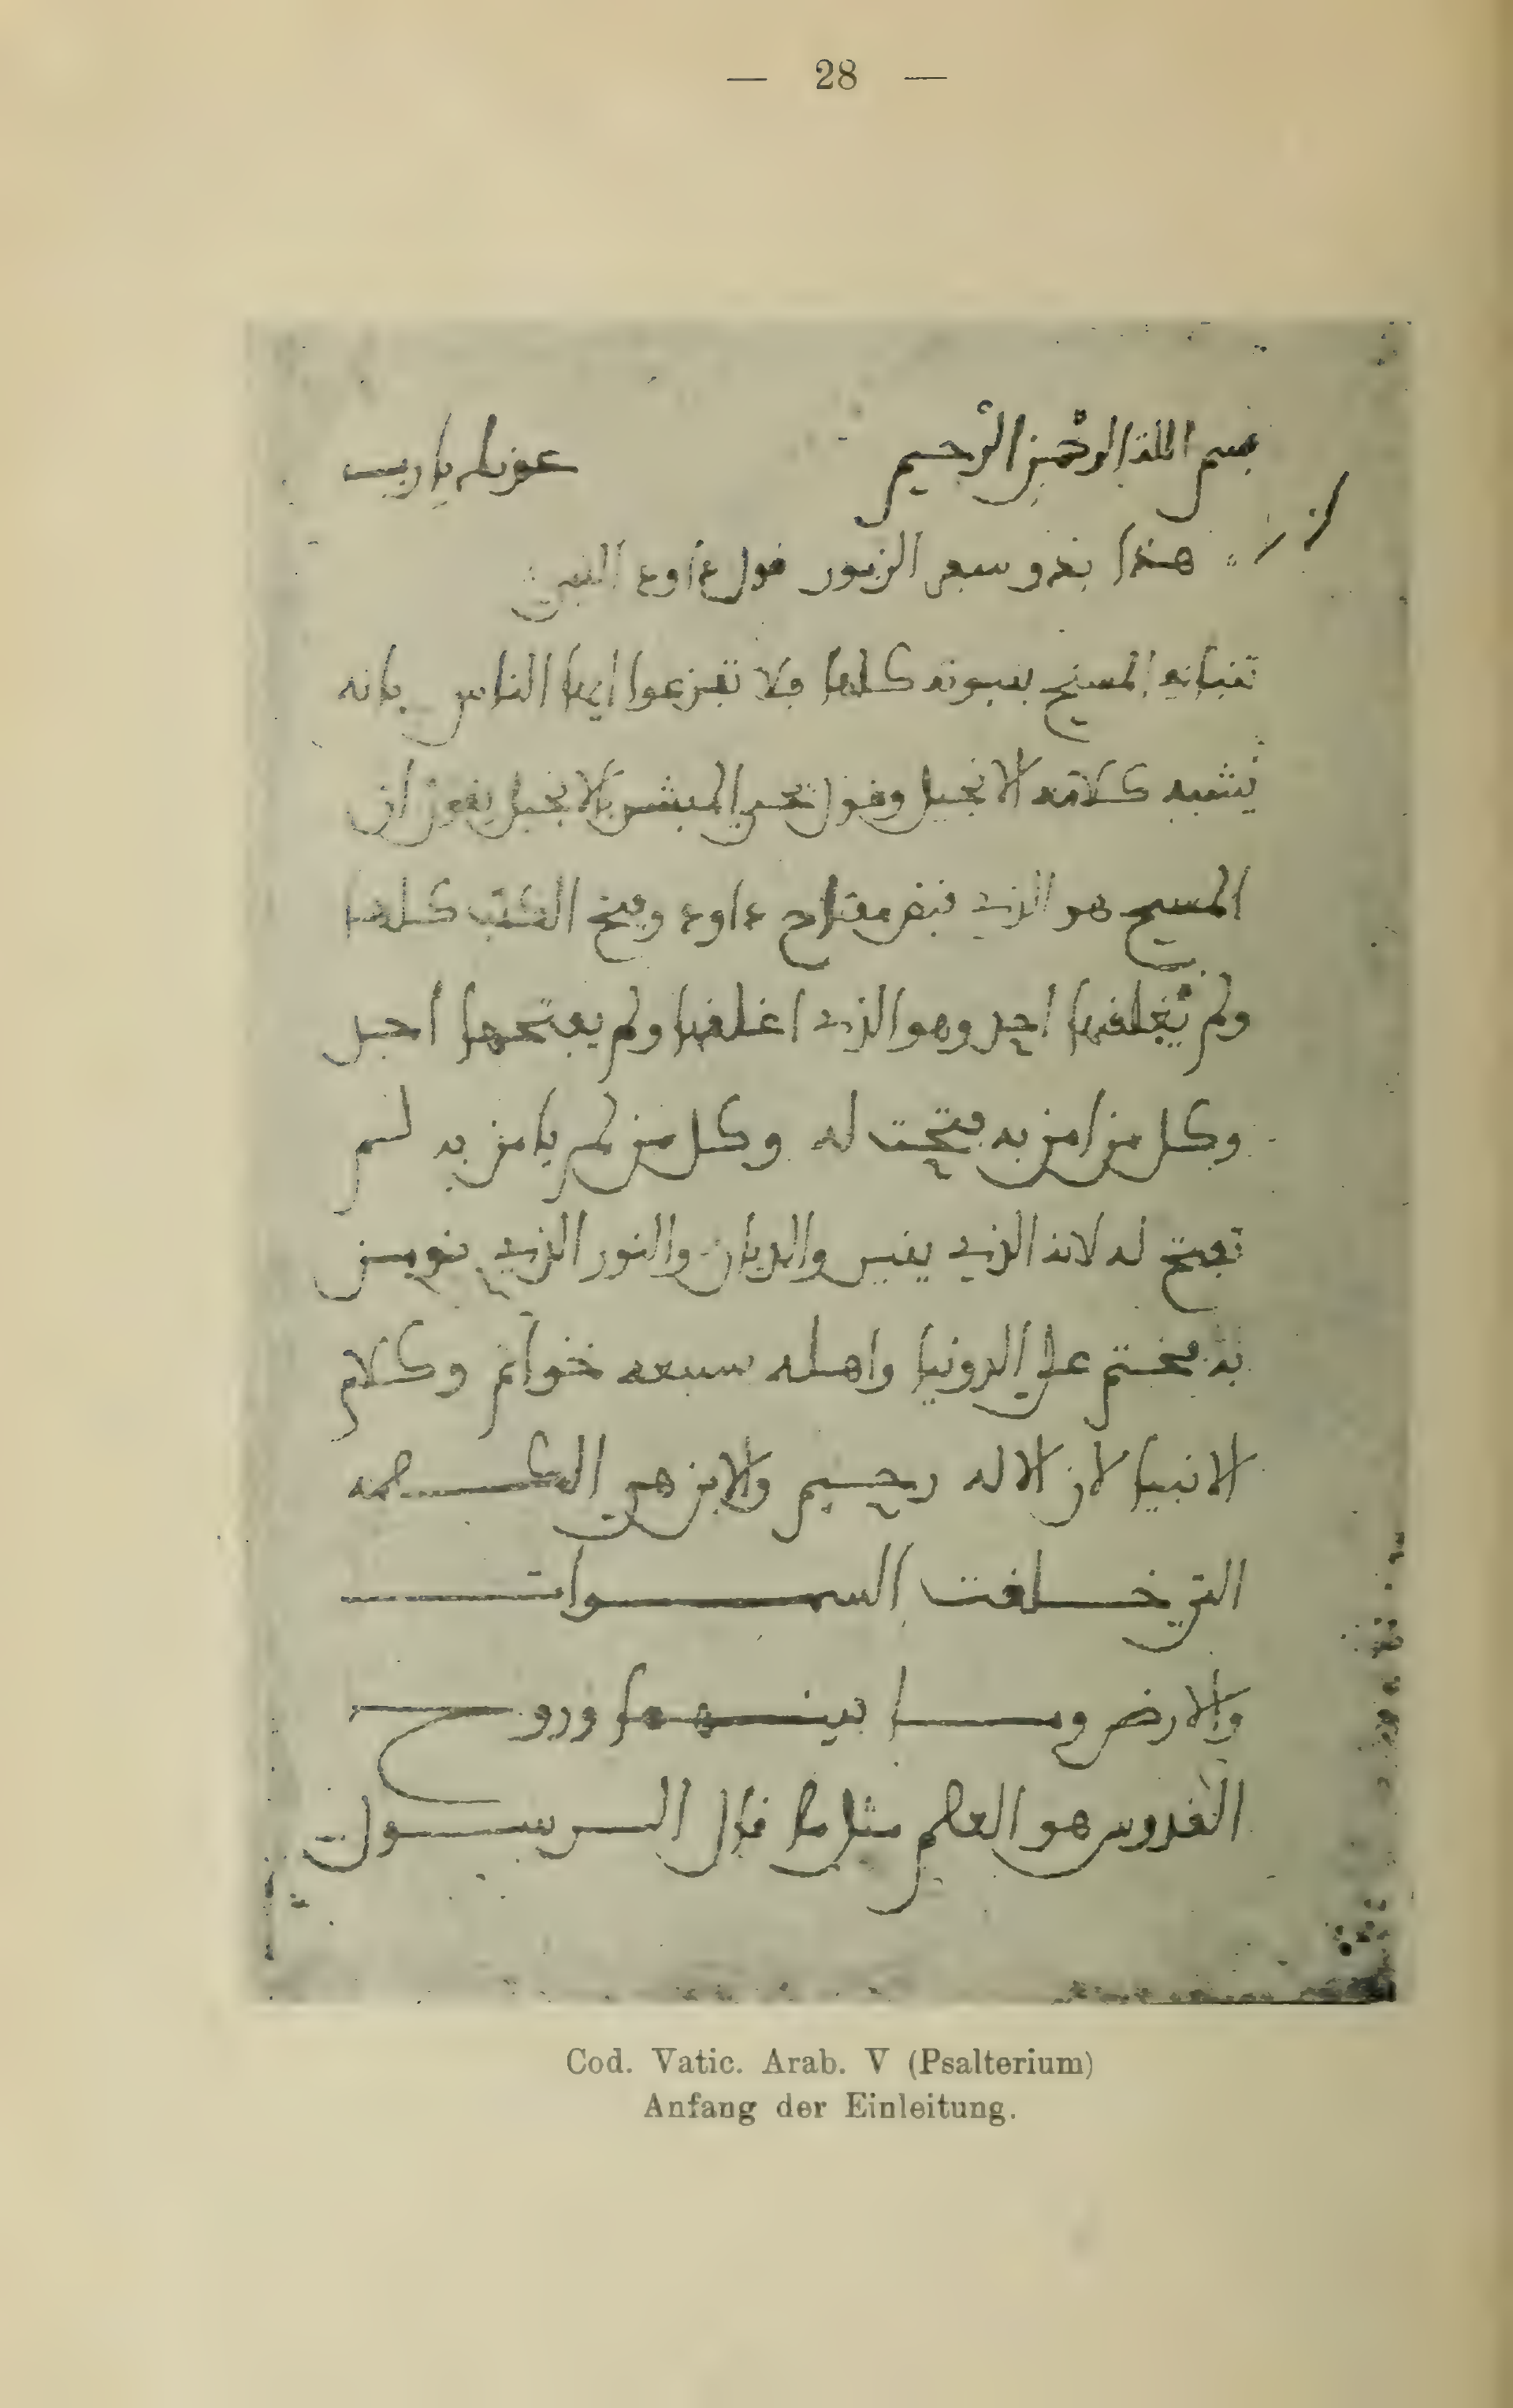 — 28 —
بسم الله الرحمن الرحيم عونك يا رب
هذا بدو سعر الزبور قول داود النبي
تنبانه المسيح بنبوته كلها ولا تفزعوا ايها الناس بانه
يشبه كلامه الانجيل وقول يحيي المبشر بالانجيل يقول ان
المسيح هو الذي قبض مفتاح داود وفتح الكتب كلها
ولم يغلقها احد وهو الذي اغلقها ولم يفتحها احد
وكل من امن به فتحت له وكل من لم يامن به لم
تفتح له لانه الذي يقيس والديان والنور الذي نومن
به مختم علي الدونيا واهله سبعه خواتم وكلام
الانبيا لان الاله رحيم والابن هي الكلمه
التي خلقت السموات
والارض وما بينهما وروح
القدوس هو العلم مثل ما قال الرسول
Cod. Vatic. Arab. V (Psalterium)
Anfang der Einleitung.